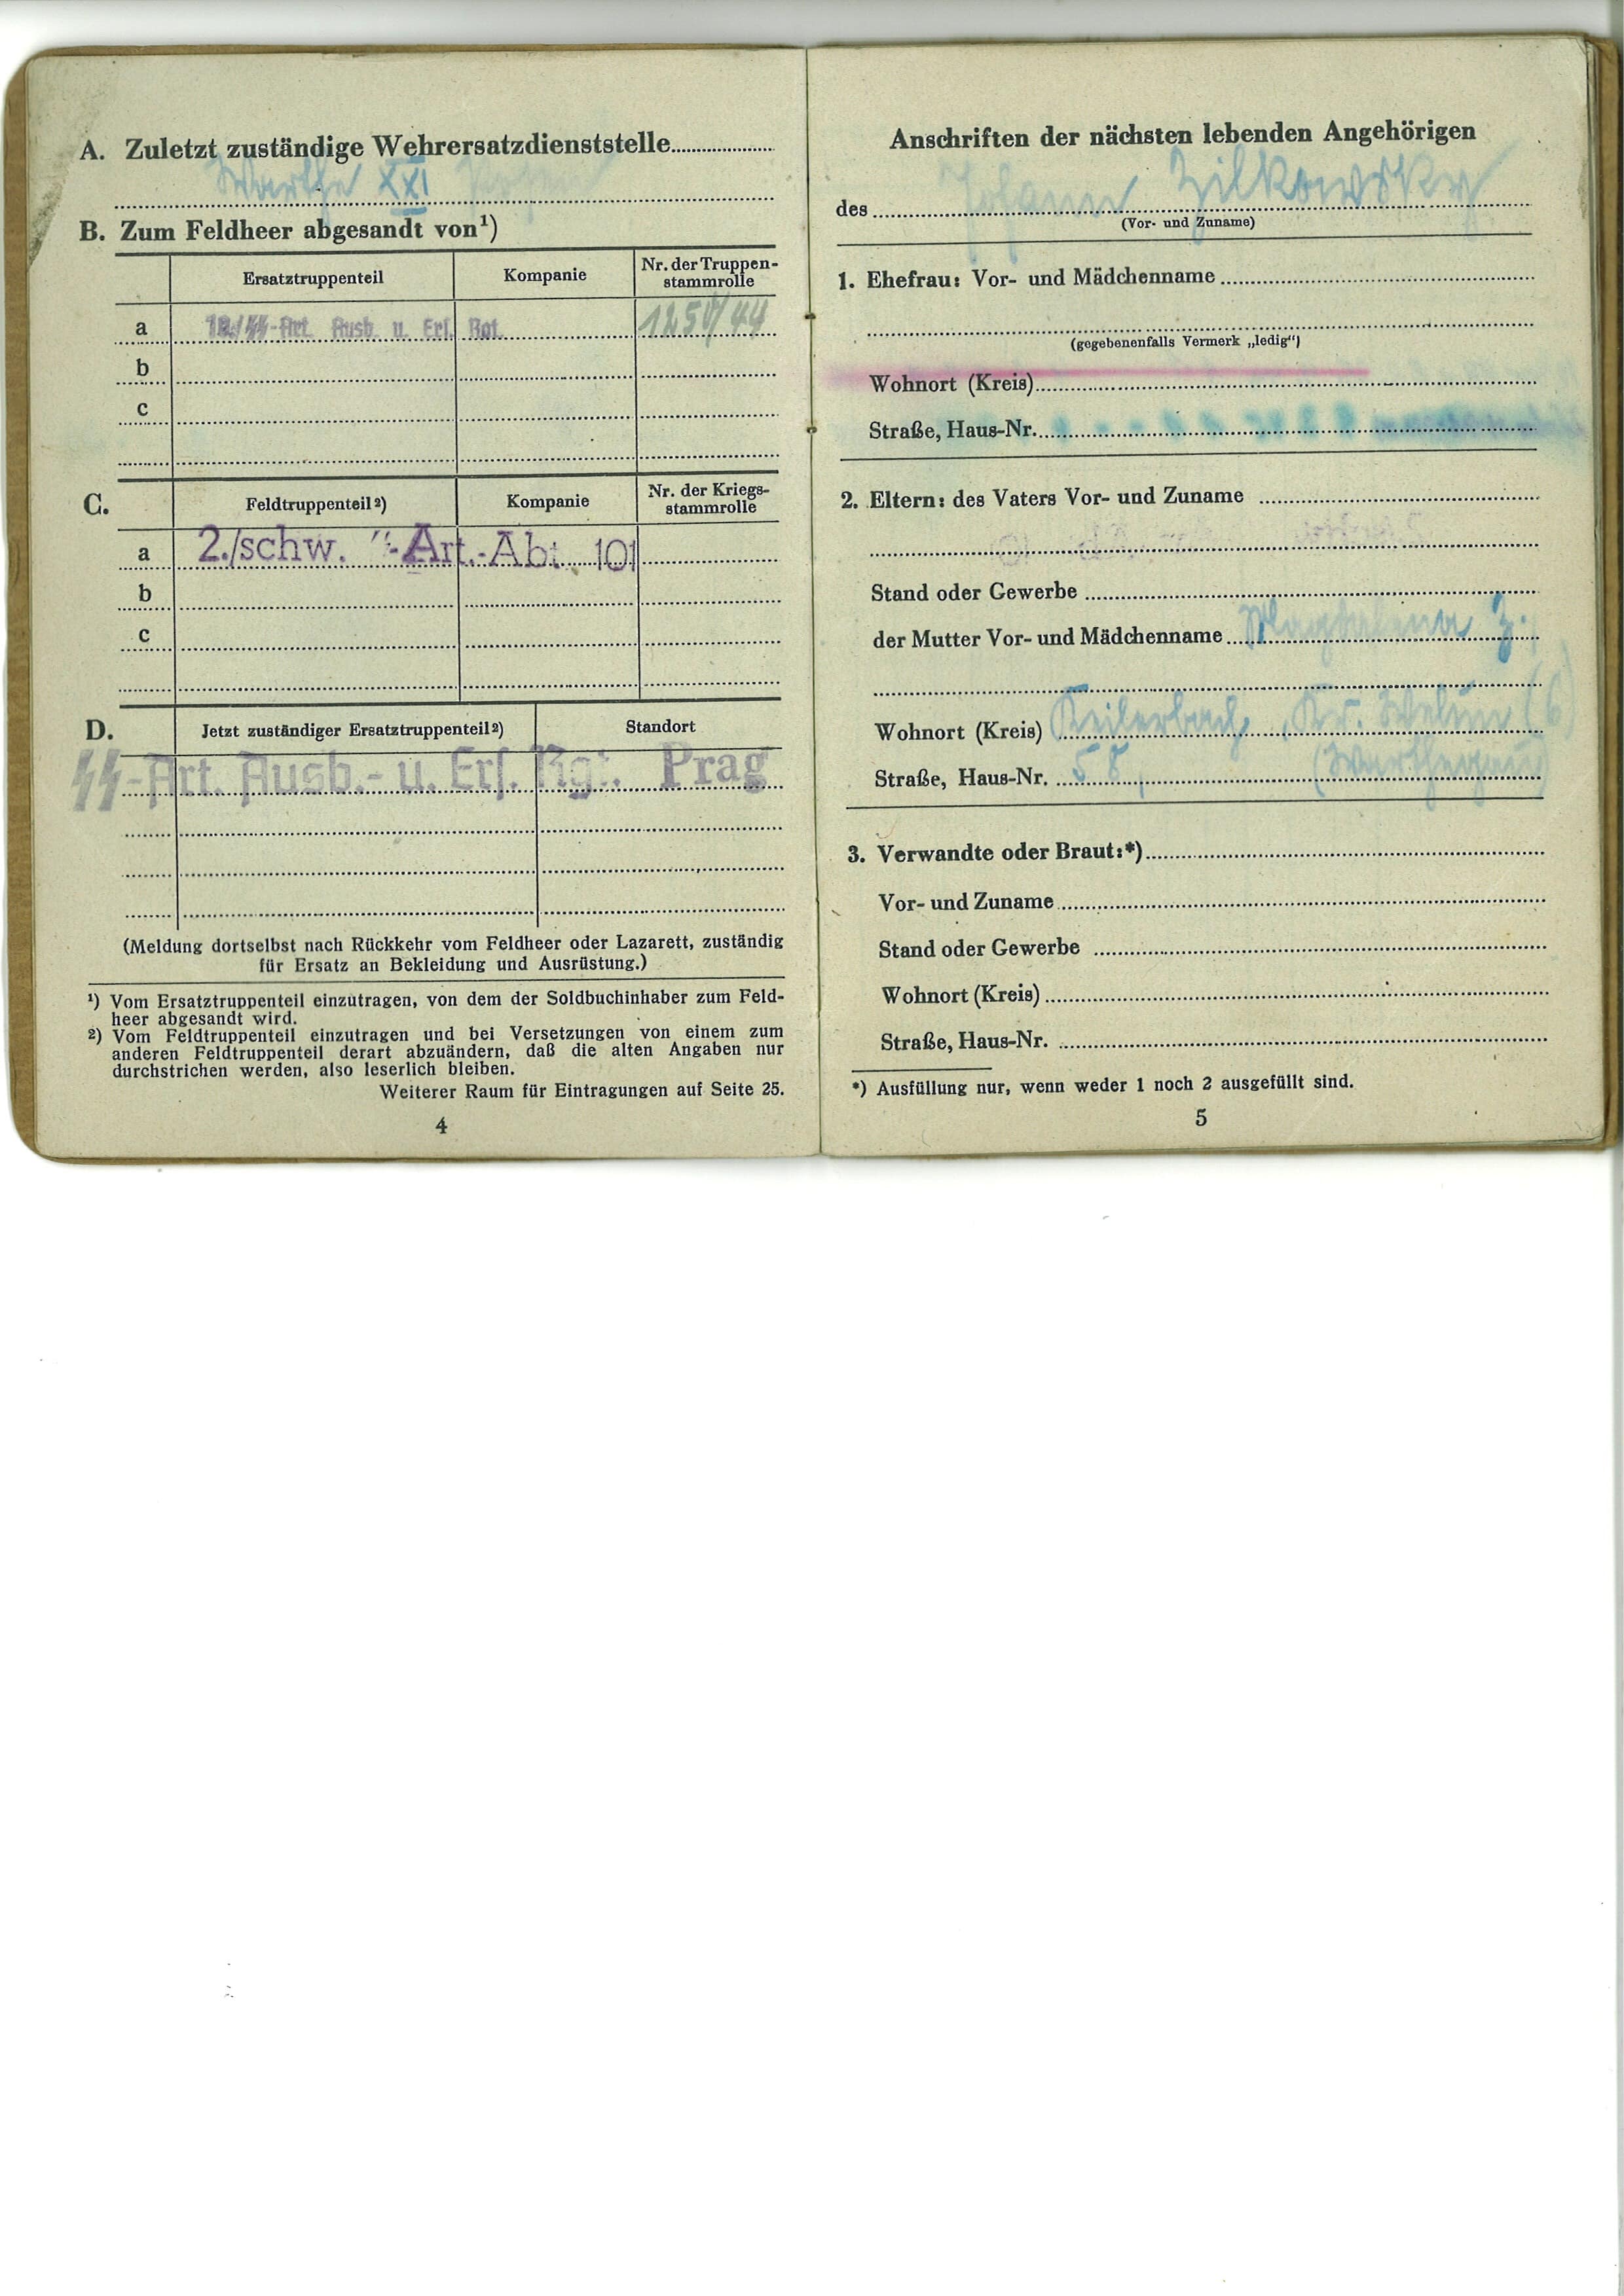 A. Zuletzt zuständige Wehrersatzdienststelle
Warthe XXI Posen
B. Zum Feldheer abgesandt von¹)
Ersatztruppenteil Kompanie Nr. der Truppen-
stammrolle
a ᛋᛋ-Art. Ausb. u. Ers. Rgt. /44
b
c
C. Feldtruppenteil²) Kompanie Nr. der Kriegs-
stammrolle
a 2./schw. ᛋᛋ-Art.-Abt. 101
b
c
D. Jetzt zuständiger Ersatztruppenteil²) Standort
ᛋᛋ-Art. Ausb.- u. Ers. Rgt. Prag
(Meldung dortselbst nach Rückkehr vom Feldheer oder Lazarett, zuständig
für Ersatz an Bekleidung und Ausrüstung.)
¹) Vom Ersatztruppenteil einzutragen, von dem der Soldbuchinhaber zum Feld-
heer abgesandt wird.
²) Vom Feldtruppenteil einzutragen und bei Versetzungen von einem zum
anderen Feldtruppenteil derart abzuändern, daß die alten Angaben nur
durchstrichen werden, also leserlich bleiben.
Weiterer Raum für Eintragungen auf Seite 25.
4
Anschriften der nächsten lebenden Angehörigen
des Johann Zilkowsky
(Vor- und Zuname)
1. Ehefrau: Vor- und Mädchenname
(gegebenenfalls Vermerk „ledig“)
Wohnort (Kreis)
Straße, Haus-Nr.
2. Eltern: des Vaters Vor- und Zuname
Stand oder Gewerbe
der Mutter Vor- und Mädchenname Magdalena Z.
Wohnort (Kreis) Keilerbach, Kr. Welun (6)
Straße, Haus-Nr. 58, (Warthegau)
3. Verwandte oder Braut:*)
Vor- und Zuname
Stand oder Gewerbe
Wohnort (Kreis)
Straße, Haus-Nr.
*) Ausfüllung nur, wenn weder 1 noch 2 ausgefüllt sind.
5